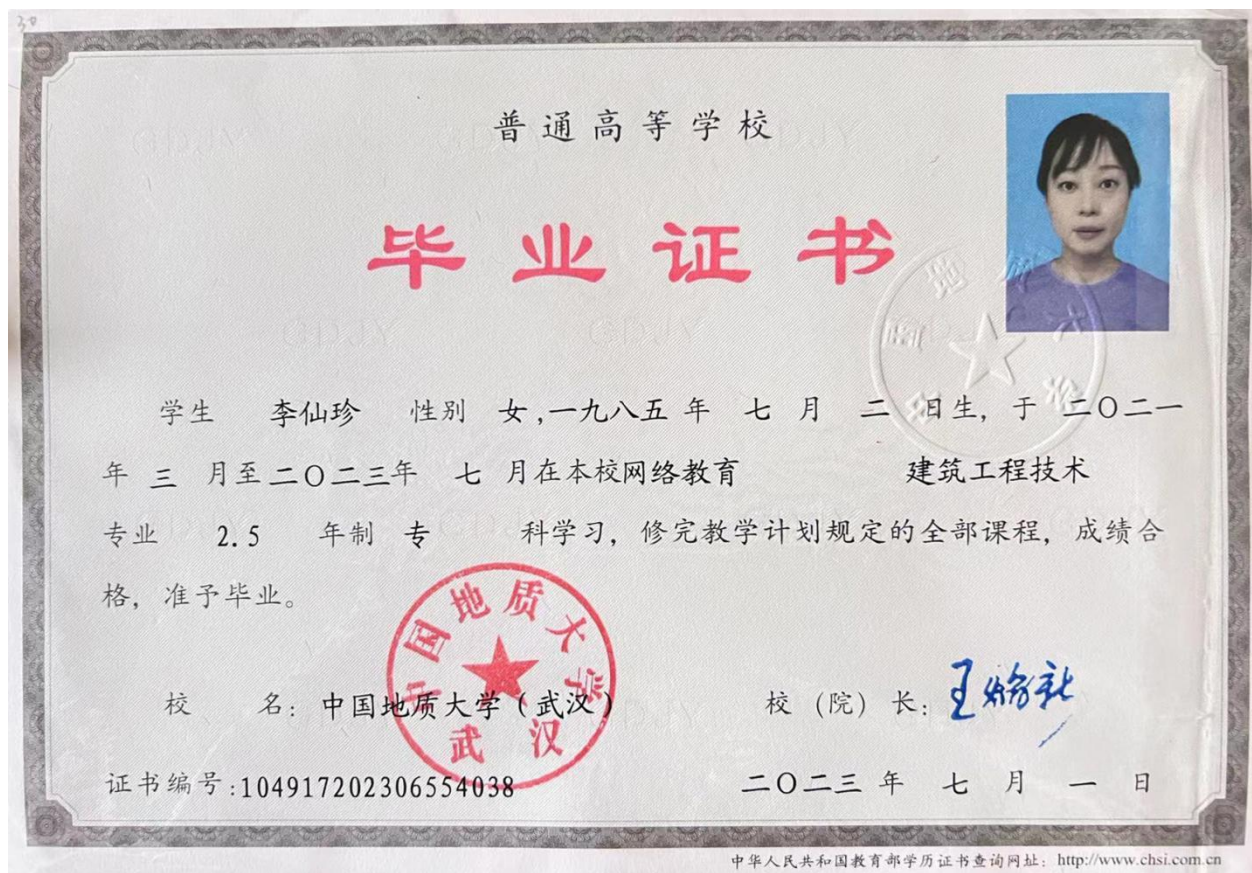 30
普通高等学校
毕业证书
学生 李仙珍 性别 女,一九八五 年 七 月 二 日生, 于 二〇二一
年 三 月至二〇二三年 七 月在本校网络教育 建筑工程技术
专业 2.5 年制 专 科学习, 修完教学计划规定的全部课程, 成绩合
格, 准予毕业。
中国地质大学
武汉
校 名: 中国地质大学(武汉) 校(院)长:
证书编号:104917202306554038 二〇二三 年 七 月 一 日
中华人民共和国教育部学历证书查询网址: http://www.chsi.com.cn